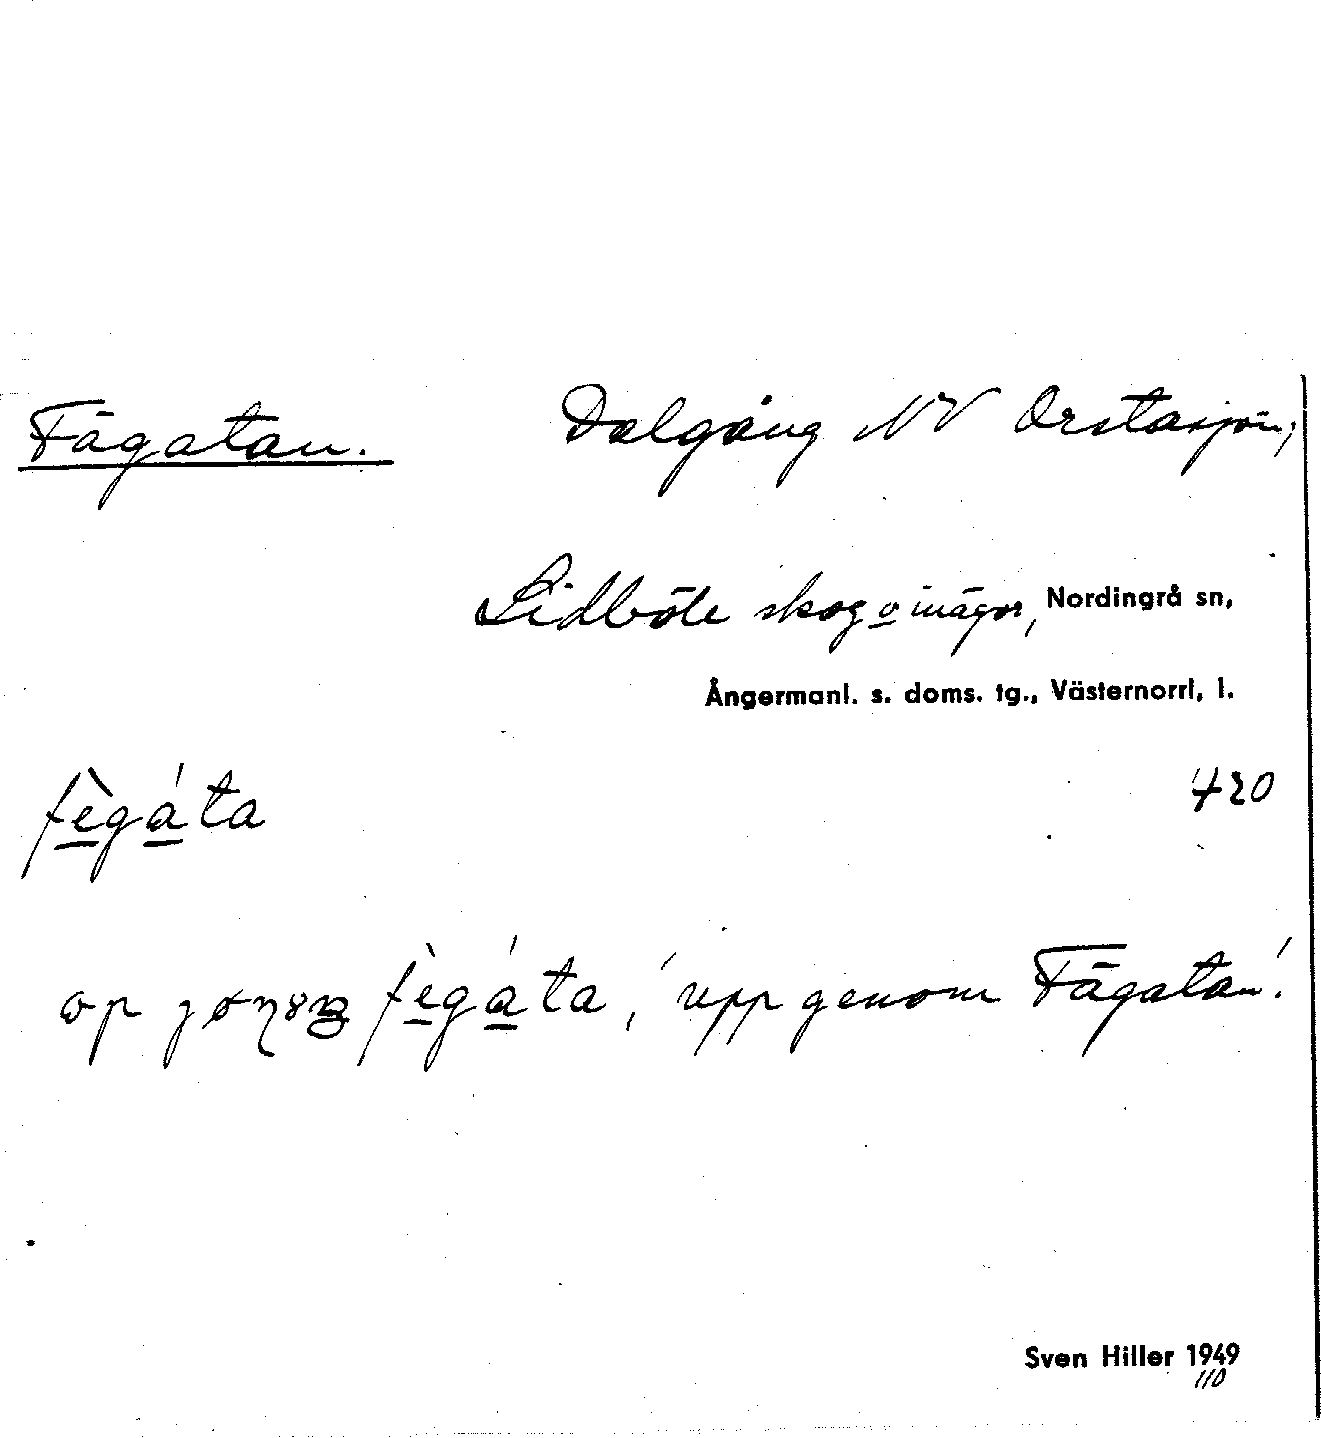 Fägatan. Dalgång NV Orstasjön;
Lidböle skog o inägor, Nordingrå sn,
Ångermanl. s. doms. tg., Västernorrl, l.
fègáta 420
op fègáta, 'upp genom Fägatan'.
Sven Hiller 1949
110